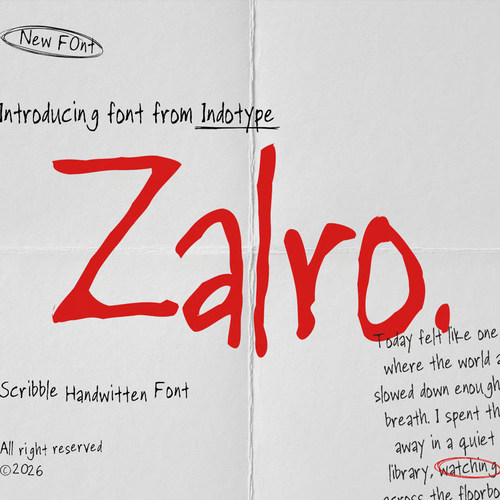 New FOnt
Introducing font from Indotype
Zalro.
Today felt like one
where the world a
slowed down enough
breath. I spent th
away in a quiet
library, watching
across the floorbo
Scribble Handwitten Font
All right reserved
©2026